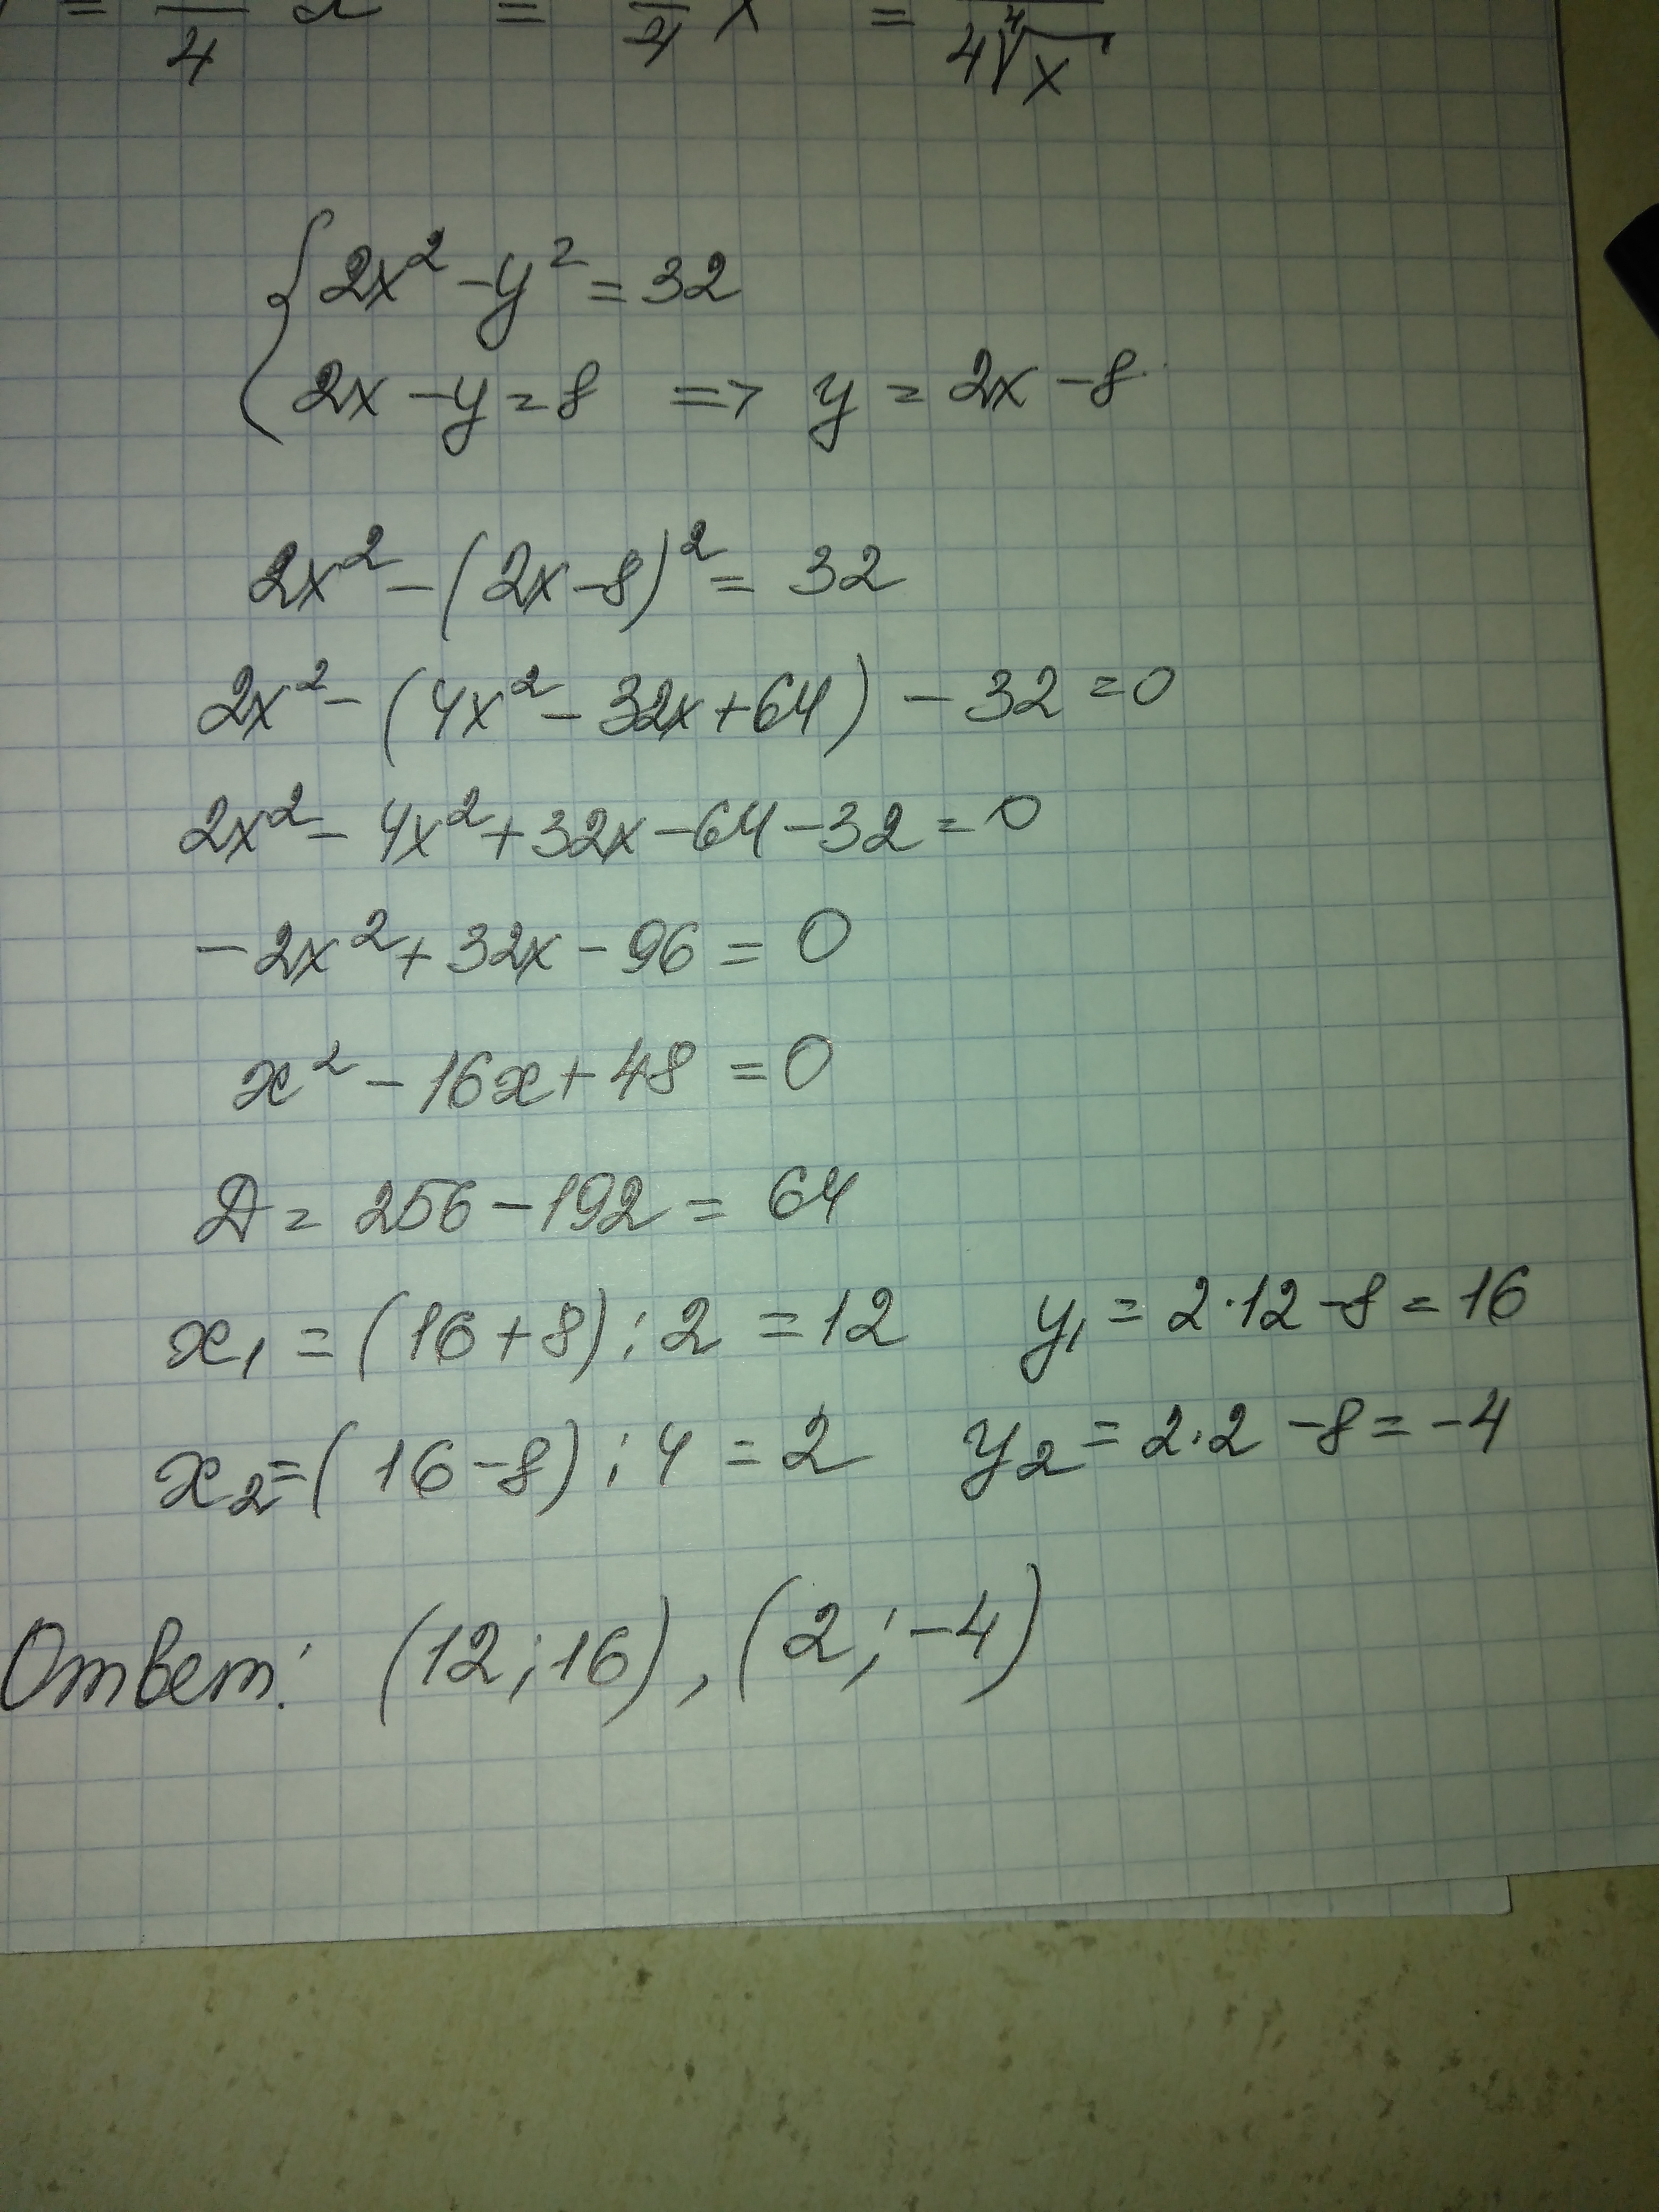 = 4 = 4 x = 4∜x
{ 2x² - y² = 32
2x - y = 8 => y = 2x - 8
2x² - (2x - 8)² = 32
2x² - (4x² - 32x + 64) - 32 = 0
2x² - 4x² + 32x - 64 - 32 = 0
-2x² + 32x - 96 = 0
x² - 16x + 48 = 0
D = 256 - 192 = 64
x₁ = (16 + 8) : 2 = 12 y₁ = 2·12 - 8 = 16
x₂ = (16 - 8) : 4 = 2 y₂ = 2·2 - 8 = -4
Ответ: (12; 16), (2; -4)